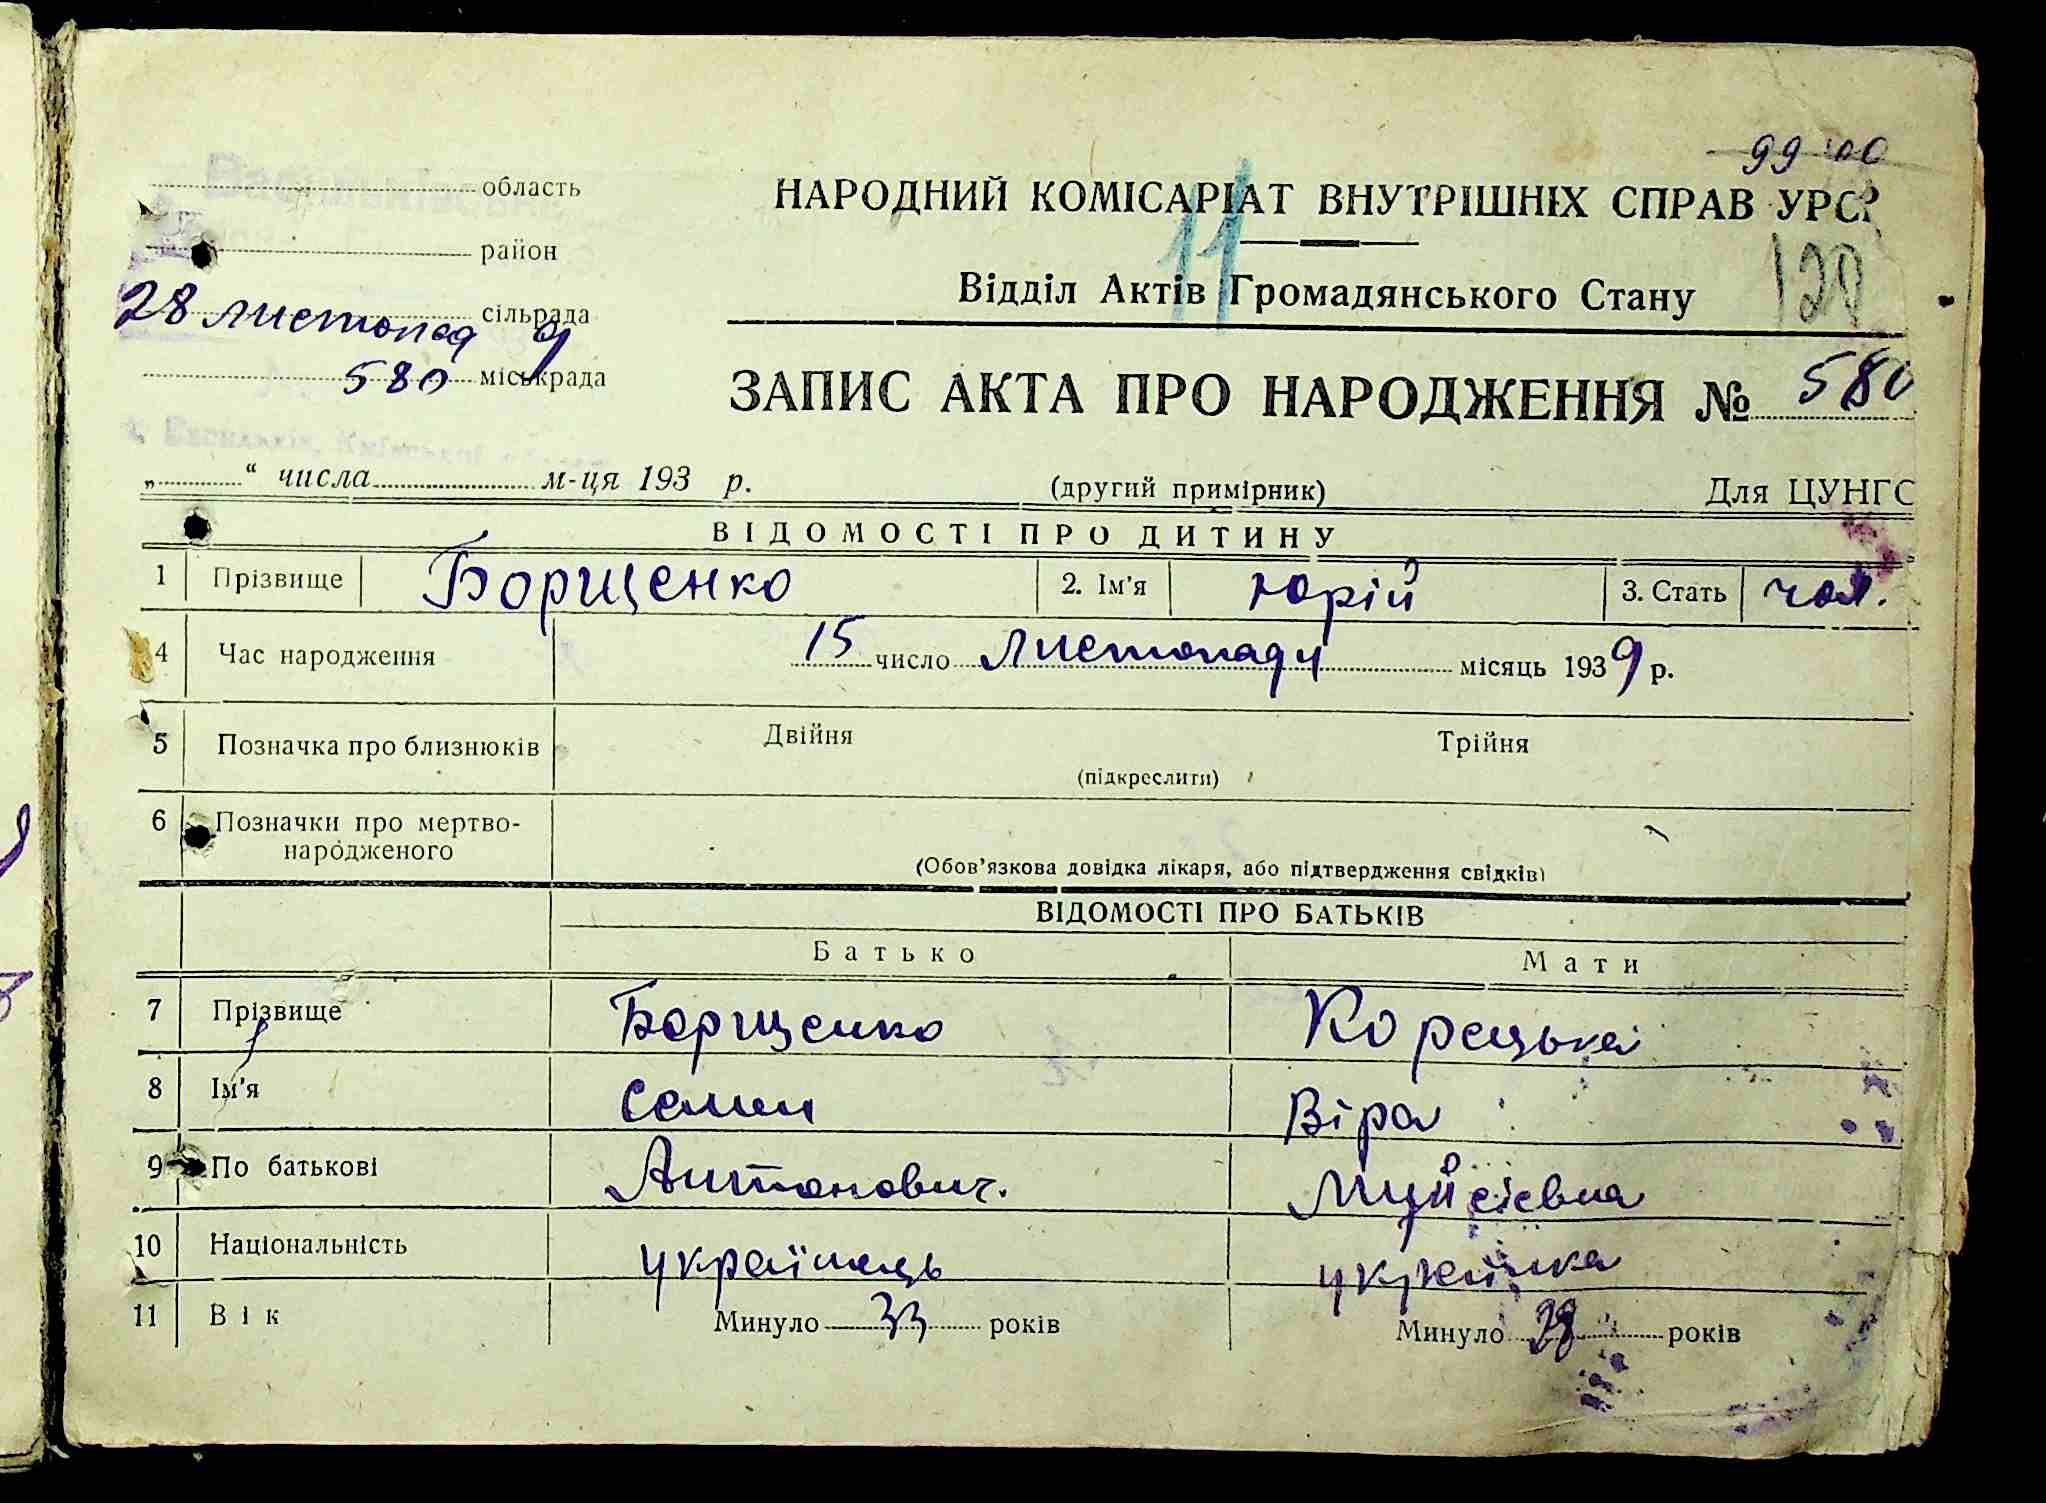 99 100
область
НАРОДНИЙ КОМІСАРІАТ ВНУТРІШНІХ СПРАВ УРСР
район
11
Відділ Актів Громадянського Стану
128
28 листопад 9 сільрада
580 міськрада
ЗАПИС АКТА ПРО НАРОДЖЕННЯ № 580
м. Васильків, Київської області
„ “ числа м-ця 193 р.
(другий примірник)
Для ЦУНГО
ВІДОМОСТІ ПРО ДИТИНУ
1 Прізвище Борщенко 2. Ім'я Юрій 3. Стать чол.
4 Час народження 15 число листопаду місяць 1939 р.
5 Позначка про близнюків Двійня Трійня
(підкреслити)
6 Позначки про мертво-
народженого
(Обов'язкова довідка лікаря, або підтвердження свідків)
ВІДОМОСТІ ПРО БАТЬКІВ
Батько Мати
7 Прізвище Борщенко Корецька
8 Ім'я Семен Віра
9 По батькові Антонович. Муйсієвна
10 Національність українець українка
11 Вік Минуло 33 років Минуло 28 років